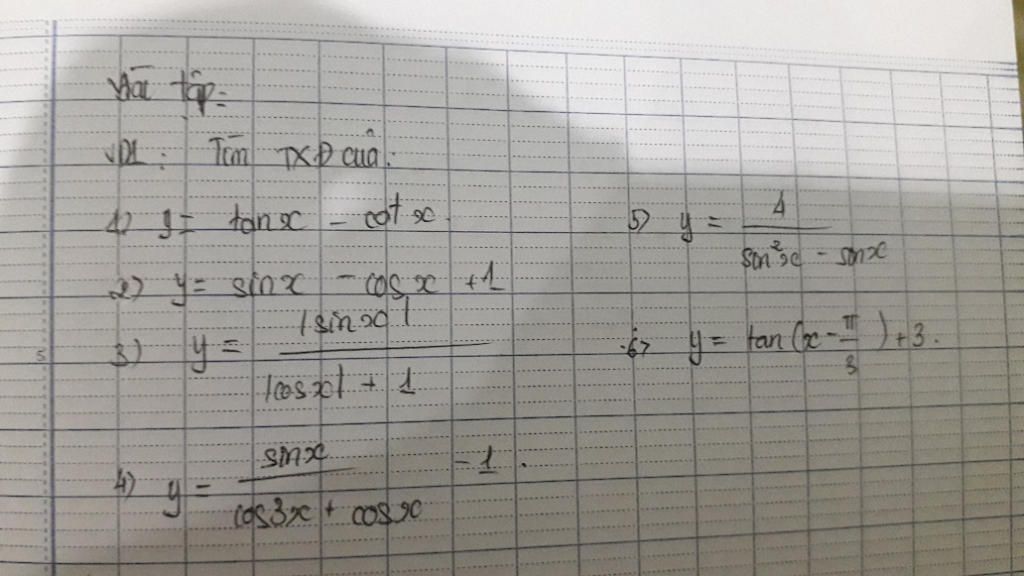 Bài tập:
VD1: Tìm TXĐ của:
1) y = tanx - cotx.
2) y = sinx - cosx + 1
3) y = |sinx| / |cosx| + 1
4) y = sinx / cos3x + cosx - 1.
5) y = 4 / sin²x - sinx
6) y = tan(x - π/3) + 3.